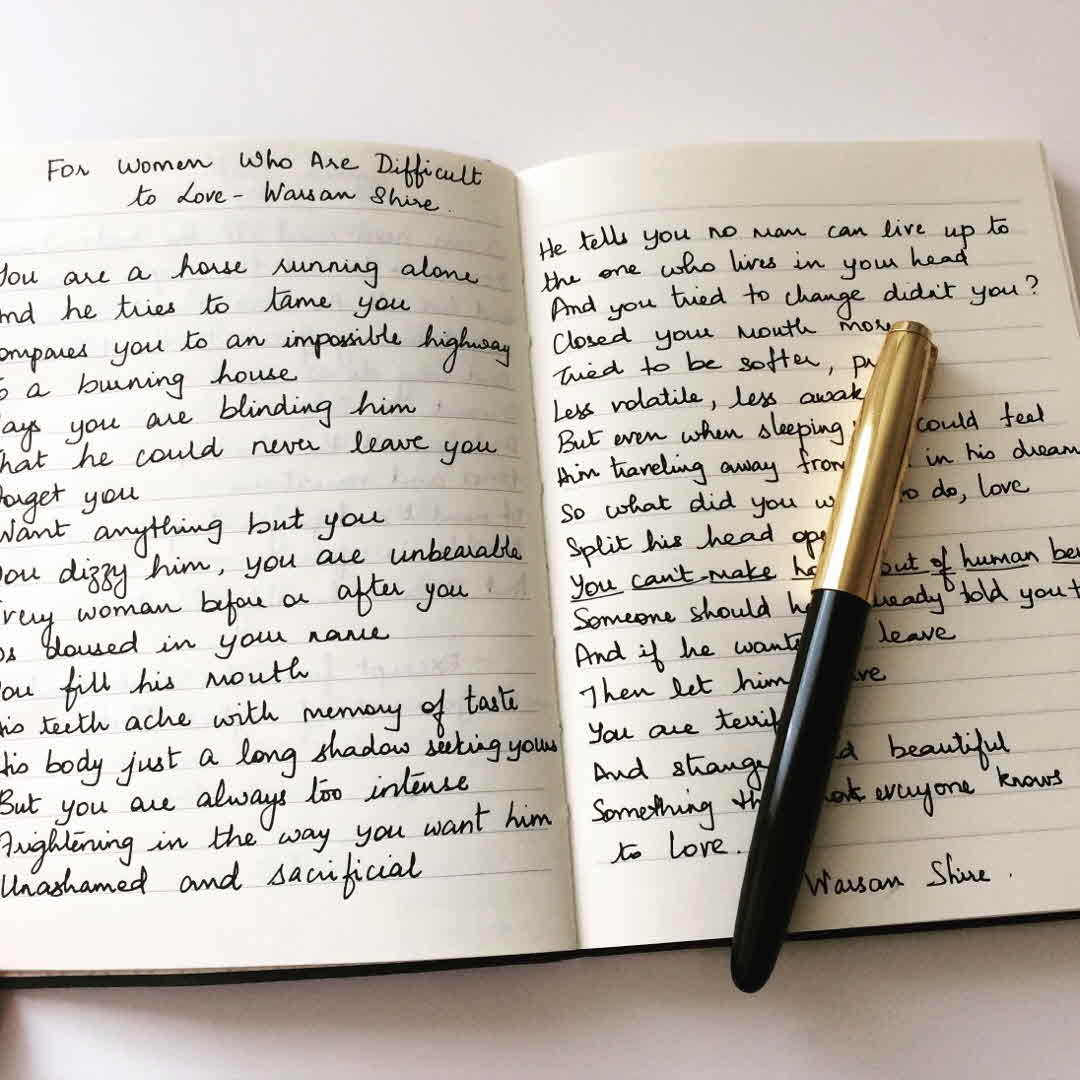 For Women Who Are Difficult
to Love - Warsan Shire.
You are a horse running alone
And he tries to tame you
compares you to an impossible highway
to a burning house
says you are blinding him
That he could never leave you
Forget you
Want anything but you
You dizzy him, you are unbearable
Every woman before or after you
Is doused in your name
You fill his mouth
His teeth ache with memory of taste
His body just a long shadow seeking yours
But you are always too intense
Frightening in the way you want him
Unashamed and sacrificial
He tells you no man can live up to
the one who lives in your head
And you tried to change didn't you?
Closed your mouth more
Tried to be softer,
Less volatile, less awak
But even when sleeping could feel
Him traveling away from in his dream
So what did you w to do, love
Split his head ope
You can't make ho out of human be
Someone should h already told you t
And if he wants leave
Then let him
You are terrif
And strange d beautiful
Something th not everyone knows
to love.
Warsan Shire.